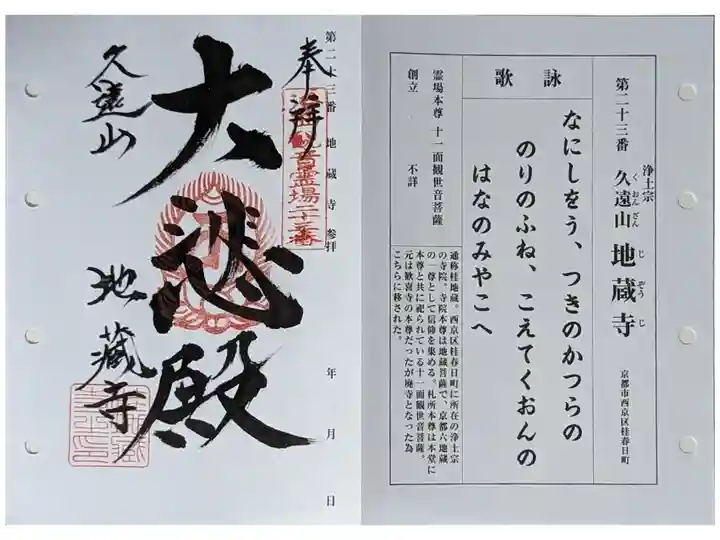 第二十三番 地蔵寺 参拝
年 月 日
奉拝
洛西観音霊場二十三番
大悲殿
久遠山
地蔵寺
第二十三番
浄土宗
久遠山 地蔵寺
く おん ざん
じ ぞう じ
京都市西京区桂春日町
詠歌
なにしをう、つきのかつらの
のりのふね、こえてくおんの
はなのみやこへ
霊場本尊 十一面観世音菩薩
創立 不詳
通称桂地蔵。西京区桂春日町に所在の浄土宗
の寺院。寺院本尊は地蔵菩薩で、京都六地蔵
の一尊として信仰を集める。札所本尊は本堂に
本尊と共に祀られている十一面観世音菩薩。
元は歓喜寺の本尊だったが廃寺となった為
こちらに移された。